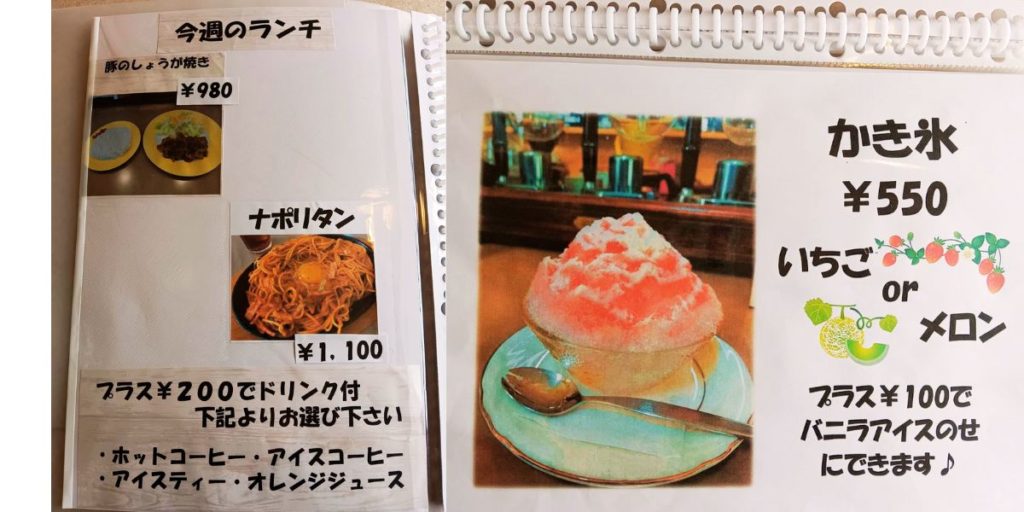 今週のランチ
豚のしょうが焼き
¥980
ナポリタン
¥1,100
プラス¥200でドリンク付
下記よりお選び下さい
・ホットコーヒー・アイスコーヒー
・アイスティー・オレンジジュース
かき氷
¥550
いちご
or
メロン
プラス¥100で
バニラアイスのせ
にできます♪